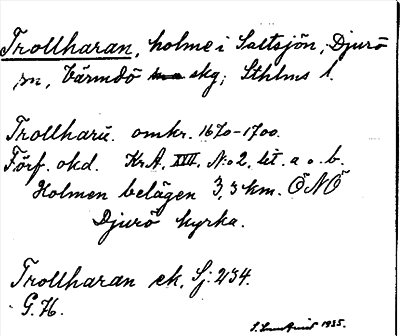 Trollharan, holme i Saltsjön, Djurö
sn, Värmdö skg, Sthlms l.
Trollharu. omkr. 1670-1700.
Förf. okd. KrA. XVII, N:o 2, lit. a o. b.
Holmen belägen 3,3 km. ÖNÖ
Djurö kyrka.
Trollharan ek. Sj. 234.
G.H.
1935.